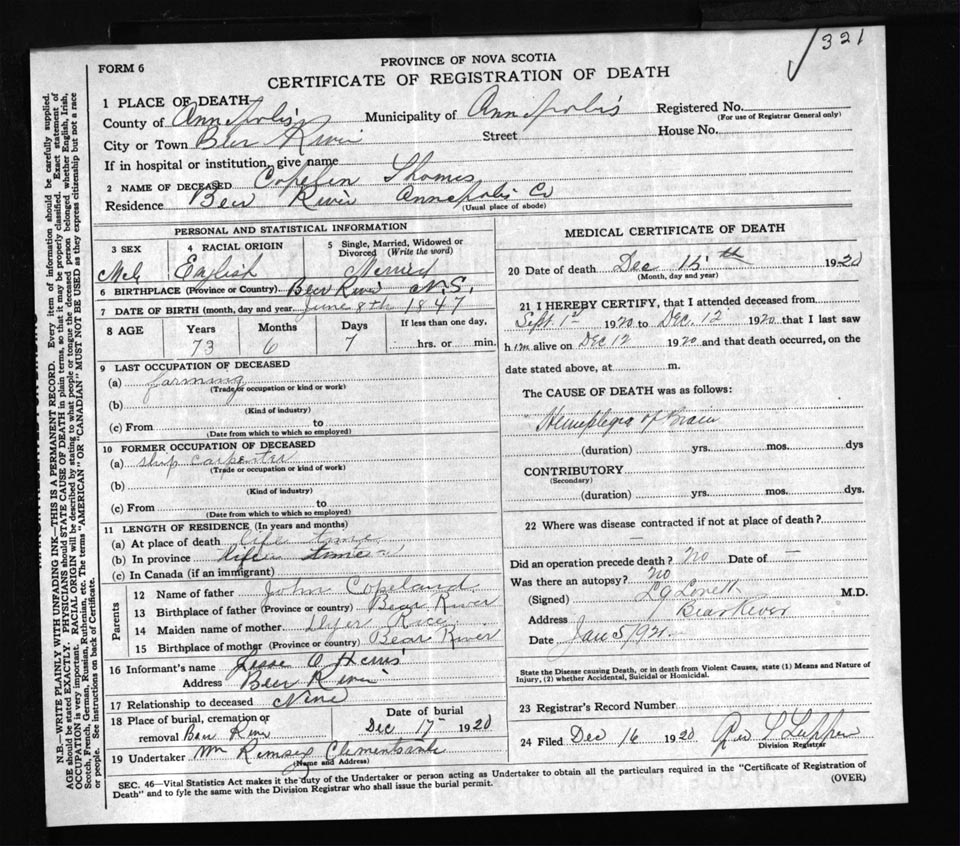 321
FORM 6
PROVINCE OF NOVA SCOTIA
CERTIFICATE OF REGISTRATION OF DEATH
1 PLACE OF DEATH
County of Annapolis Municipality of Annapolis Registered No.
(For use of Registrar General only)
City or Town Bear River Street House No.
If in hospital or institution, give name
2 NAME OF DECEASED Copelin Thomas
Residence Bear River Annapolis Co
(Usual place of abode)
PERSONAL AND STATISTICAL INFORMATION
3 SEX 4 RACIAL ORIGIN 5 Single, Married, Widowed or Divorced (Write the word)
Male English Married
6 BIRTHPLACE (Province or Country) Bear River N.S.
7 DATE OF BIRTH (month, day and year June 8th 1847
8 AGE Years Months Days If less than one day,
73 6 7 hrs. or min.
9 LAST OCCUPATION OF DECEASED
(a) farming
(Trade or occupation or kind or work)
(b)
(Kind of industry)
(c) From to
(Date from which to which so employed)
10 FORMER OCCUPATION OF DECEASED
(a) ship carpenter
(Trade or occupation or kind of work)
(b)
(Kind of industry)
(c) From to
(Date from which to which so employed)
11 LENGTH OF RESIDENCE (In years and months)
(a) At place of death life time
(b) In province life time
(c) In Canada (if an immigrant)
Parents
12 Name of father John Copeland
13 Birthplace of father (Province or country) Bear River
14 Maiden name of mother Rice
15 Birthplace of mother (Province or country) Bear River
16 Informant's name Jesse O
Address Bear River
17 Relationship to deceased None
18 Place of burial, cremation or removal Bear River
Date of burial Dec 17 1920
19 Undertaker Wm Rimsey Clementsvale
(Name and Address)
MEDICAL CERTIFICATE OF DEATH
20 Date of death Dec 15th 1920
(Month, day and year)
21 I HEREBY CERTIFY, that I attended deceased from
Sept 1st 1920 to Dec. 12 1920 that I last saw
him alive on Dec 12 1920 and that death occurred, on the
date stated above, at m.
The CAUSE OF DEATH was as follows:
Hemiplegia of Brain
(duration) yrs. mos. dys
CONTRIBUTORY
(Secondary)
(duration) yrs. mos. dys.
22 Where was disease contracted if not at place of death?
—
Did an operation precede death? No Date of —
Was there an autopsy? No
(Signed) L J Lovett M.D.
Address Bear River
Date Jan 5/1921
State the Disease causing Death, or in death from Violent Causes, state (1) Means and Nature of
Injury, (2) whether Accidental, Suicidal or Homicidal.
23 Registrar's Record Number
24 Filed Dec 16 1920
Division Registrar
SEC. 46—Vital Statistics Act makes it the duty of the Undertaker or person acting as Undertaker to obtain all the particulars required in the "Certificate of Registration of
Death" and to fyle the same with the Division Registrar who shall issue the burial permit.
(OVER)
N.B.—WRITE PLAINLY WITH UNFADING INK—THIS IS A PERMANENT RECORD. Every item of information should be carefully supplied.
AGE should be stated EXACTLY. PHYSICIANS should STATE CAUSE OF DEATH in plain terms, so that it may be properly classified. Exact statement of
OCCUPATION is very important. RACIAL ORIGIN will be described by stating to what people or tongue the deceased person belonged, whether English, Irish,
Scotch, French, German, Russian, Ruthenian, etc. The terms "AMERICAN" OR "CANADIAN" MUST NOT BE USED as they express citizenship but not a race
or people. See instructions on back of Certificate.